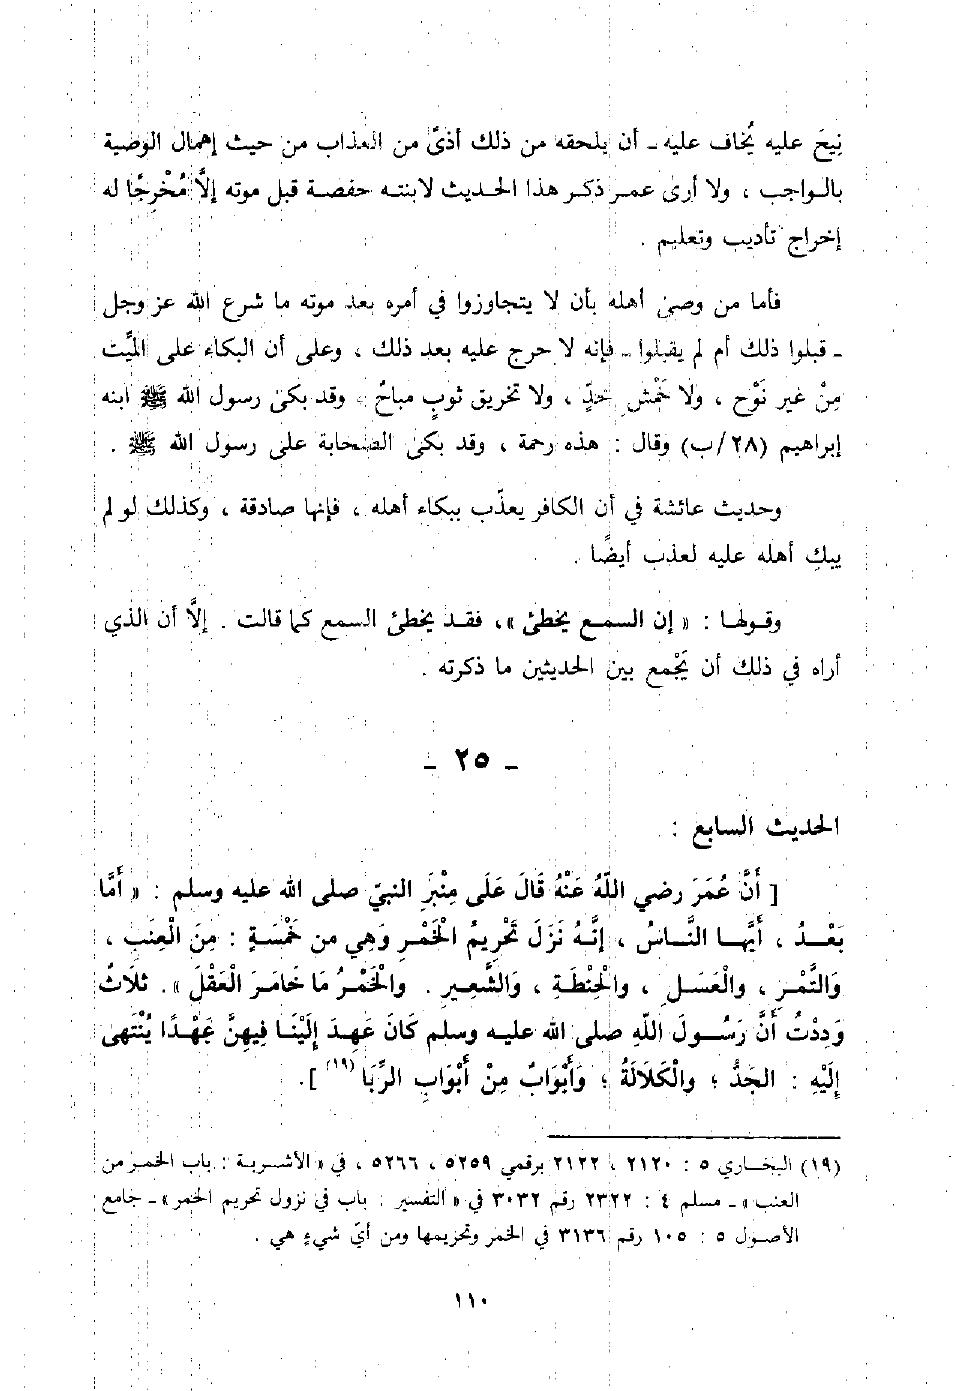 نِيحَ عليه يُخاف عليه ـ أن يلحقه من ذلك أذىً من العذاب من حيث إهمال الوصية
بالواجب ، ولا أرى عمر ذكر هذا الحديث لابنته حفصة قبل موته إلَّا مُخْرِجًا له
إخراج تأديب وتعليم .
فأما من وصىٰ أهله بأن لا يتجاوزوا في أمره بعد موته ما شرع الله عز وجل
ـ قبلوا ذلك أم لم يقبلوا ـ فإنه لا حرج عليه بعد ذلك ، وعلى أن البكاء على الميِّت
مِنْ غير نَوْح ، ولَا خَمْشِ خدٍّ ، ولا تخريق ثوبٍ مباحٌ . وقد بكىٰ رسول الله ﷺ ابنه
إبراهيم (٢٨/ب) وقال : هذه رحمة ، وقد بكىٰ الصحابة على رسول الله ﷺ .
وحديث عائشة في أن الكافر يعذّب ببكاء أهله ، فإنها صادقة ، وكذلك لو لم
يبكِ أهله عليه لعذب أيضًا .
وقولها : « إن السمع يخطئ »، فقد يخطئ السمع كما قالت . إلَّا أن الذي
أراه في ذلك أن يَجْمع بين الحديثين ما ذكرته .
ـ ٢٥ ـ
الحديث السابع :
[ أَنَّ عُمَرَ رضي اللَّهُ عَنْهُ قَالَ عَلَى مِنْبَرَ النبيّ صلى الله عليه وسلم : « أَمَّا
بَعْدُ ، أَيُّهَا النَّاسُ ، إِنَّهُ نَزَلَ تَحْرِيمُ الْخَمْرِ وَهِي من خَمْسَةٍ : مِنَ الْعِنَبِ ،
وَالتَّمْرِ ، وَالْعَسَلِ ، والْحِنْطَةِ ، وَالشَّعِيرِ . والْخَمْرُ مَا خَامَرَ الْعَقْلَ ». ثلَاثٌ
وَدِدْتُ أَنَّ رَسُولَ اللَّهِ صلى الله عليه وسلم كَانَ عَهِدَ إِلَيْنَا فِيهِنَّ عَهْدًا يُنْتَهى
إِلَيْهِ : الجَدُّ ؛ والْكَلَالَةُ ؛ وَأَبْوَابٌ مِنْ أَبْوَابِ الرِّبَا (١٩) ].
(١٩) البخاري ٥ : ٢١٢٠ ، ٢١٢٢ برقمي ٥٢٥٩ ، ٥٢٦٦ ، في « الأشربة : باب الخمر من
العنب » ـ مسلم ٤ : ٢٣٢٢ رقم ٣٠٣٢ في « التفسير : باب في نزول تحريم الخمر » ـ جامع
الأصول ٥ : ١٠٥ رقم ٣١٣٦ في الخمر وتحريمها ومن أيّ شيءٍ هي .
١١٠